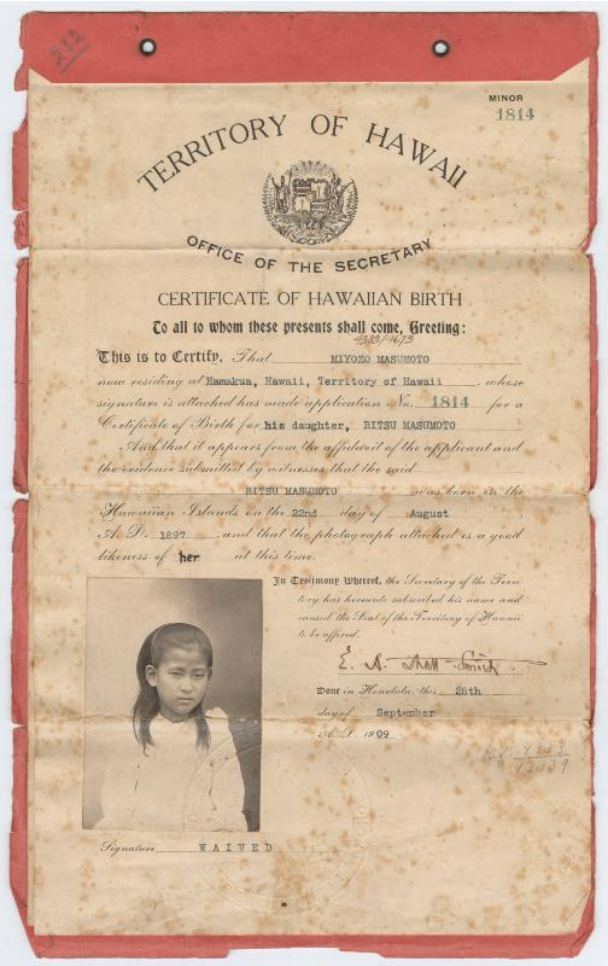 232
MINOR
1814
TERRITORY OF HAWAII
OFFICE OF THE SECRETARY
CERTIFICATE OF HAWAIIAN BIRTH
To all to whom these presents shall come, Greeting:
This is to Certify, That MIYOZO MASUMOTO
now residing at Hamakua, Hawaii, Territory of Hawaii, whose
signature is attached has made application No. 1814 for a
Certificate of Birth for his daughter, RITSU MASUMOTO
And that it appears from the affidavit of the applicant and
the evidence submitted by witnesses that the said
RITSU MASUMOTO was born in the
Hawaiian Islands on the 22nd day of August
A. D. 1897, and that the photograph attached is a good
likeness of her at this time.
In Testimony Whereof, the Secretary of the Terri-
tory has hereunto subscribed his name and
caused the Seal of the Territory of Hawaii
to be affixed.
Done in Honolulu, this 28th
day of September
A. D. 1909
Signature WAIVED